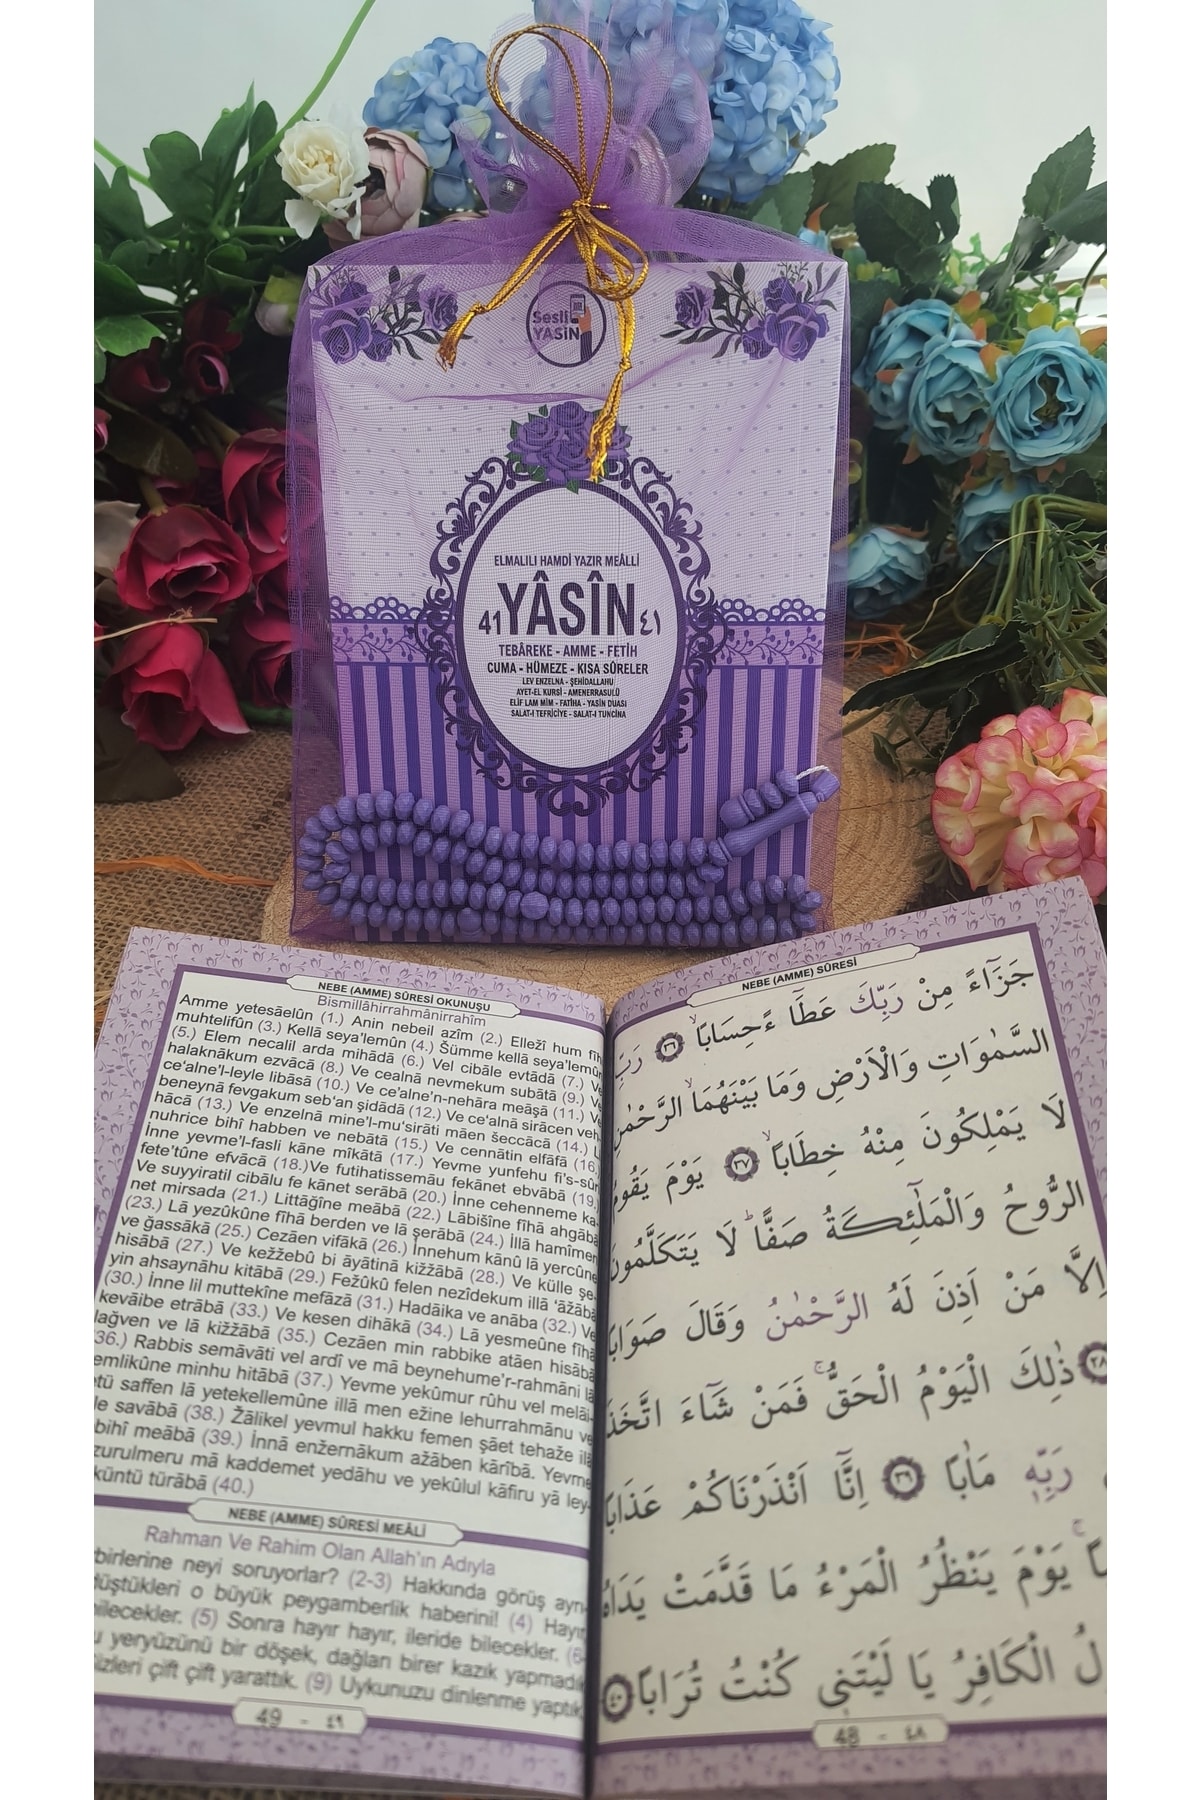 Sesli
YASİN
ELMALILI HAMDİ YAZIR MEÂLLİ
41 YÂSÎN ٤١
TEBÂREKE - AMME - FETİH
CUMA - HÜMEZE - KISA SÛRELER
LEV ENZELNA - ŞEHİDALLAHU
AYET-EL KURSİ - AMENERRASULÜ
ELİF LAM MİM - FATİHA - YASİN DUASI
SALAT-I TEFRİCİYE - SALAT-I TUNCİNA
NEBE (AMME) SÛRESİ OKUNUŞU
Bismillâhirrahmânirrahîm
Amme yetesāelûn (1.) Anin nebeil azîm (2.) Elležî hum fîh
muhtelifûn (3.) Kellā seya'lemûn (4.) Šümme kellā seya'lemûn
(5.) Elem necalil arda mihādā (6.) Vel cibāle evtādā (7.) V
halaknākum ezvācā (8.) Ve cealnā nevmekum subātā (9.) V
ce'alne'l-leyle libāsā (10.) Ve ce'alne'n-nehāra meāşā (11.) V
beneynā fevgakum seb'an şidādā (12.) Ve ce'alnā sirācen veh
hācā (13.) Ve enzelnā mine'l-mu'sirāti māen šeccācā (14.) L
nuhrice bihî habben ve nebātā (15.) Ve cennātin elfāfā (16.
İnne yevme'l-fasli kāne mîkātā (17.) Yevme yunfehu fi's-sûr
fete'tûne efvācā (18.)Ve futihatissemāu fekānet ebvābā (19.
Ve suyyiratil cibālu fe kānet serābā (20.) İnne cehenneme ka-
net mirsada (21.) Littāğîne meābā (22.) Lābišîne fîhā ahgābā
(23.) Lā yezûkûne fîhā berden ve lā şerābā (24.) İllā hamîmen
ve ğassākā (25.) Cezāen vifākā (26.) İnnehum kānû lā yercûne
hisābā (27.) Ve kežžebû bi āyātinā kižžābā (28.) Ve külle şe-
yin ahsaynāhu kitābā (29.) Fežûkû felen nezîdekum illā 'āžābā
(30.) İnne lil muttekîne mefāzā (31.) Hadāika ve anāba (32.) Ve
kevāibe etrābā (33.) Ve kesen dihākā (34.) Lā yesmeûne fîhā
lağven ve lā kižžābā (35.) Cezāen min rabbike atāen hisābā
36.) Rabbis semāvāti vel ardî ve mā beynehume'r-rahmāni lā
emlikûne minhu hitābā (37.) Yevme yekûmur rûhu vel melāi-
tü saffen lā yetekellemûne illā men ežine lehurrahmānu ve
le savābā (38.) Žālikel yevmul hakku femen şāet tehaže ilā
bihî meābā (39.) İnnā enžernākum ažāben kārîbā. Yevme
zurulmeru mā kaddemet yedāhu ve yekûlul kāfiru yā ley-
küntü türābā (40.)
NEBE (AMME) SÛRESİ MEÂLİ
Rahman Ve Rahim Olan Allah'ın Adıyla
birlerine neyi soruyorlar? (2-3) Hakkında görüş ayrı-
düştükleri o büyük peygamberlik haberini! (4) Hayır
bilecekler. (5) Sonra hayır hayır, ileride bilecekler. (6-
yeryüzünü bir döşek, dağları birer kazık yapmadık
izleri çift çift yarattık. (9) Uykunuzu dinlenme yaptık
49 - ٤٩
NEBE (AMME) SÛRESİ
جَزَٓاءً مِنْ رَبِّكَ عَطَٓاءً حِسَابًاۙ ٣٦ رَبِّ
السَّمٰوَاتِ وَالْاَرْضِ وَمَا بَيْنَهُمَا الرَّحْمٰنِ
لَا يَمْلِكُونَ مِنْهُ خِطَابًاۙ ٣٧ يَوْمَ يَقُومُ
الرُّوحُ وَالْمَلٰٓئِكَةُ صَفًّاۜ لَا يَتَكَلَّمُونَ
اِلَّا مَنْ اَذِنَ لَهُ الرَّحْمٰنُ وَقَالَ صَوَابًا
٣٨ ذٰلِكَ الْيَوْمُ الْحَقُّۚ فَمَنْ شَٓاءَ اتَّخَذَ
رَبِّه۪ مَاٰبًا ٣٩ اِنَّٓا اَنْذَرْنَاكُمْ عَذَابًا
يَوْمَ يَنْظُرُ الْمَرْءُ مَا قَدَّمَتْ يَدَاهُ
الْكَافِرُ يَا لَيْتَن۪ي كُنْتُ تُرَابًا ٤٠
48 - ٤٨